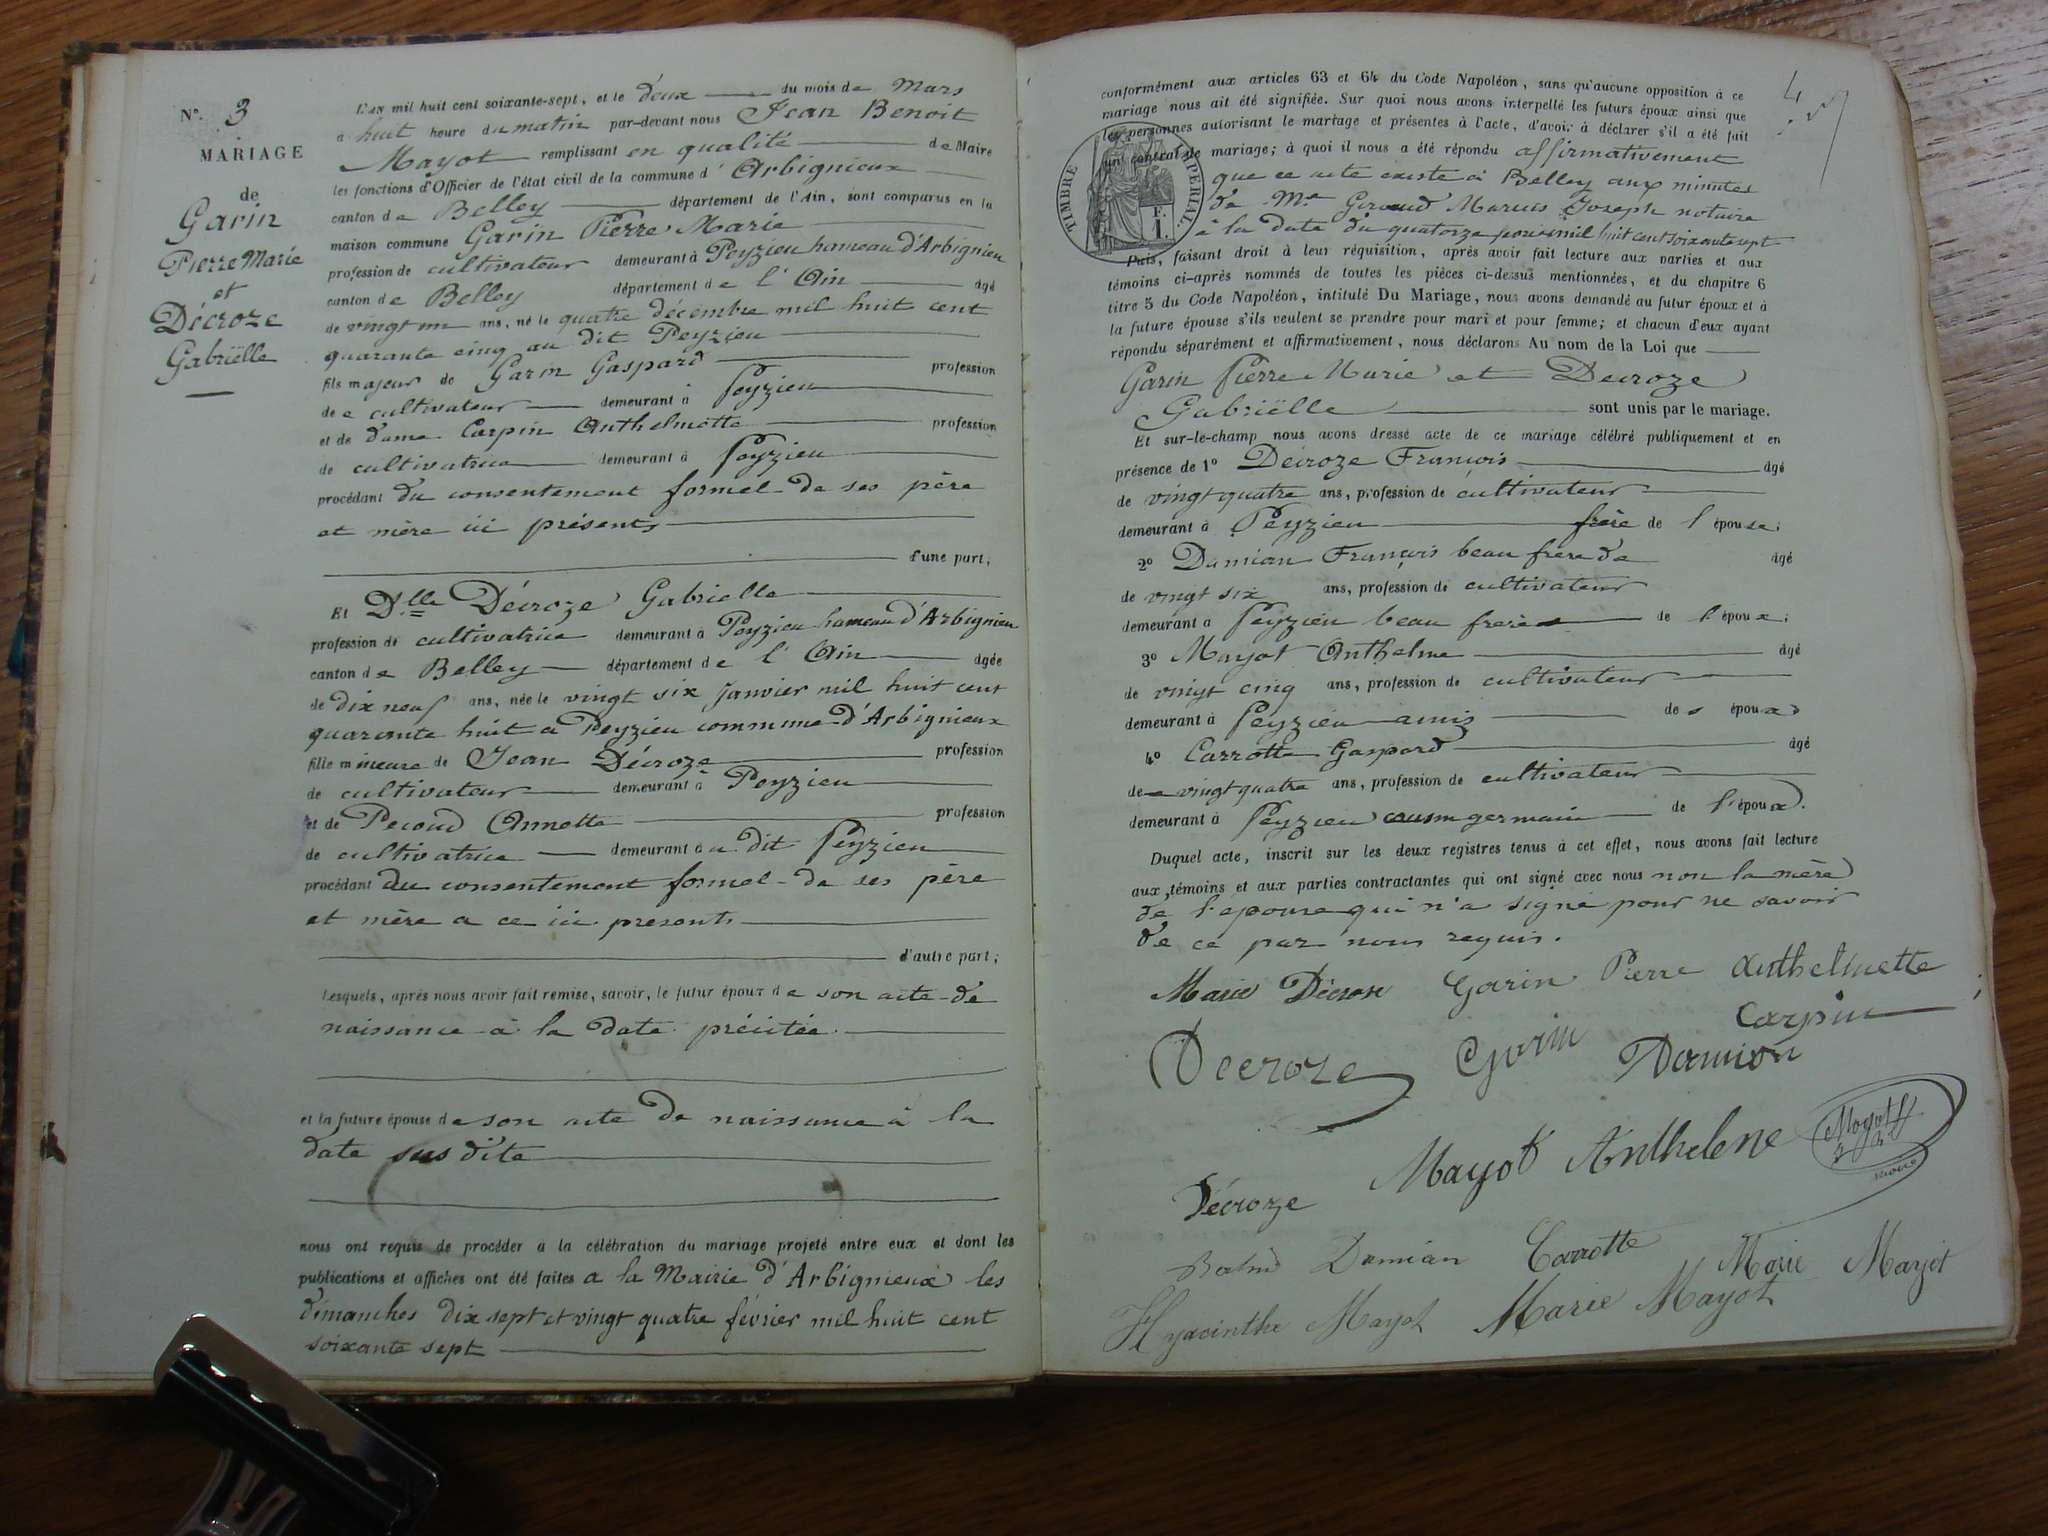 N° 3
MARIAGE
de
Garin
Pierre Marie
et
Décroze
Gabriëlle
L'an mil huit cent soixante-sept, et le deux du mois de Mars
a huit heure du matin par-devant nous Jean Benoit
Mayot remplissant en qualité de Maire
les fonctions d'Officier de l'état civil de la commune d' Arbignieux
canton de Belley département de l'Ain, sont comparus en la
maison commune Garin Pierre Marie
profession de cultivateur demeurant à Peyzieu hameau d'Arbignieu
canton de Belley département de l'Ain âgé
de vingt un ans, né le quatre décembre mil huit cent
quarante cinq au dit Peyzieu
fils majeur de Garin Gaspard profession
de cultivateur demeurant à Peyzieu
et de dame Carpin Anthelmette profession
de cultivatrice demeurant à Peyzieu
procédant du consentement formel de ses père
et mère ici présents
d'une part;
Et Dlle Décroze Gabrielle
profession de cultivatrice demeurant à Peyzieu hameau d'Arbignieu
canton de Belley département de l'Ain âgée
de dix neuf ans, née le vingt six Janvier mil huit cent
quarante huit a Peyzieu commune d'Arbignieux
fille mineure de Jean Décroze profession
de cultivateur demeurant à Peyzieu
et de Pecoud Annette profession
de cultivatrice demeurant au dit Peyzieu
procédant du consentement formel de ses père
et mère a ce ici presents
d'autre part;
Lesquels, après nous avoir fait remise, savoir, le futur époux de son acte de
naissance à la date précitée.
et la future épouse de son acte de naissance à la
date sus dite
nous ont requis de procéder à la célébration du mariage projeté entre eux et dont les
publications et affiches ont été faites a la Mairie d'Arbignieux les
dimanches dix sept et vingt quatre février mil huit cent
soixante sept
4
conformément aux articles 63 et 64 du Code Napoléon, sans qu'aucune opposition à ce
mariage nous ait été signifiée. Sur quoi nous avons interpellé les futurs époux ainsi que
les personnes autorisant le mariage et présentes à l'acte, d'avoir à déclarer s'il a été fait
un contrat de mariage; à quoi il nous a été répondu affirmativement
que ce acte existe à Belley aux minutes
de Me Giroud Marcus Joseph notaire
à la date du quatorze mil huit cent soixante sept
TIMBRE IMPERIAL
F.
1.
Puis, faisant droit à leur réquisition, après avoir fait lecture aux parties et aux
témoins ci-après nommés de toutes les pièces ci-dessus mentionnées, et du chapitre 6
titre 5 du Code Napoléon, intitulé Du Mariage, nous avons demandé au futur époux et à
la future épouse s'ils veulent se prendre pour mari et pour femme; et chacun d'eux ayant
répondu séparément et affirmativement, nous déclarons Au nom de la Loi que
Garin Pierre Marie et Decroze
Gabriëlle sont unis par le mariage.
Et sur-le-champ nous avons dressé acte de ce mariage célébré publiquement et en
présence de 1° Décroze François âgé
de vingt quatre ans, profession de cultivateur
demeurant à Peyzieu frère de l'épouse;
2° Damian François beau frere de âgé
de vingt six ans, profession de cultivateur
demeurant a Peyzieu beau frere de l'époux;
3° Mayot Anthelme âgé
de vingt cinq ans, profession de cultivateur
demeurant à Peyzieu amis des époux
4° Carrotte Gaspard âgé
de vingt quatre ans, profession de cultivateur
demeurant à Peyzieu cousin germain de l'époux.
Duquel acte, inscrit sur les deux registres tenus à cet effet, nous avons fait lecture
aux témoins et aux parties contractantes qui ont signé avec nous non la mère
de l'épouse qui n'a signé pour ne savoir
de ce par nous requis.
Marie Décrose Garin Pierre Anthelmette
Carpin
Decroze Garin Damian
Mayot Anthelme Mayot
maire
Décroze
Damian Carrotte Marie Mayot
Hyacinthe Mayot Marie Mayot